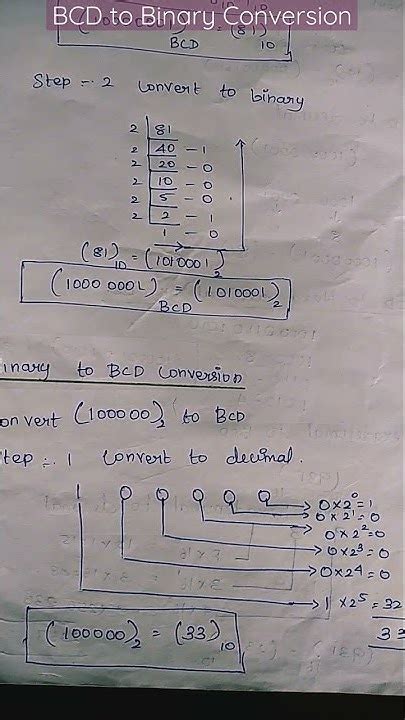 BCD to Binary Conversion
(81)
BCD 10
Step - 2 Convert to binary
2 81
2 40 - 1
2 20 - 0
2 10 - 0
2 5 - 0
2 2 - 1
1 - 0
(81)10 = (1010001)2
(1000 0001)BCD = (1010001)2
inary to BCD Conversion
onvert (100000)2 to BCD
tep :- 1 Convert to decimal.
1 0 0 0 0 0
0 x 2^0 = 1
0 x 2^1 = 0
0 x 2^2 = 0
0 x 2^3 = 0
0 x 2^4 = 0
1 x 2^5 = 32
33
(100000)2 = (33)10